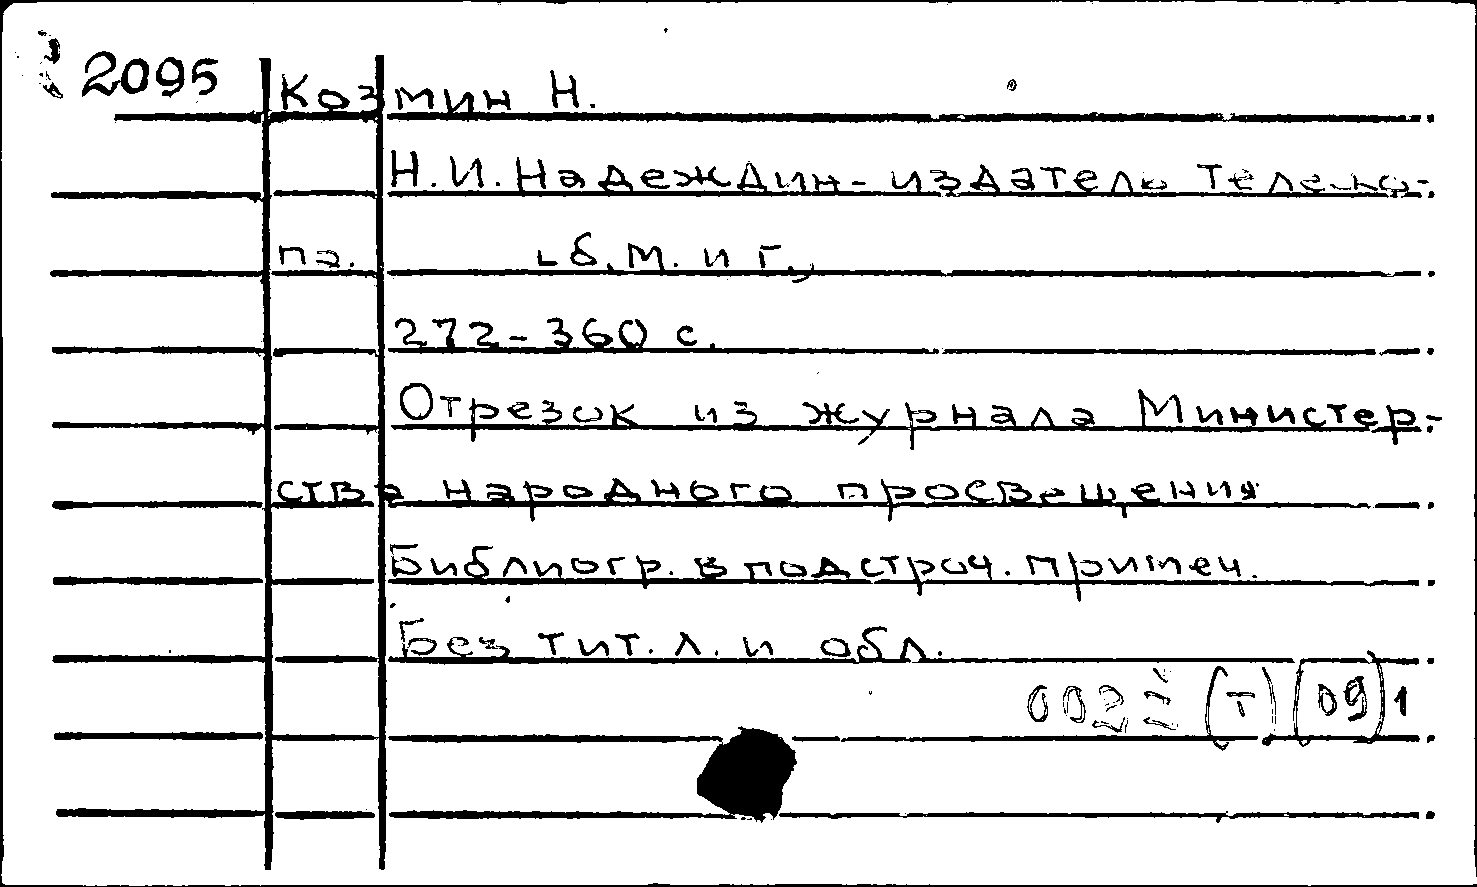 2095 Козмин Н.
Н.И. Надеждин - издатель Телеско-
па. [б.м. и г.,
272-360 с.
Отрезок из журнала Министер-
ства народного просвещения
Библиогр. в подстроч. примеч.
Без тит. л. и обл.
(Т)(09)1